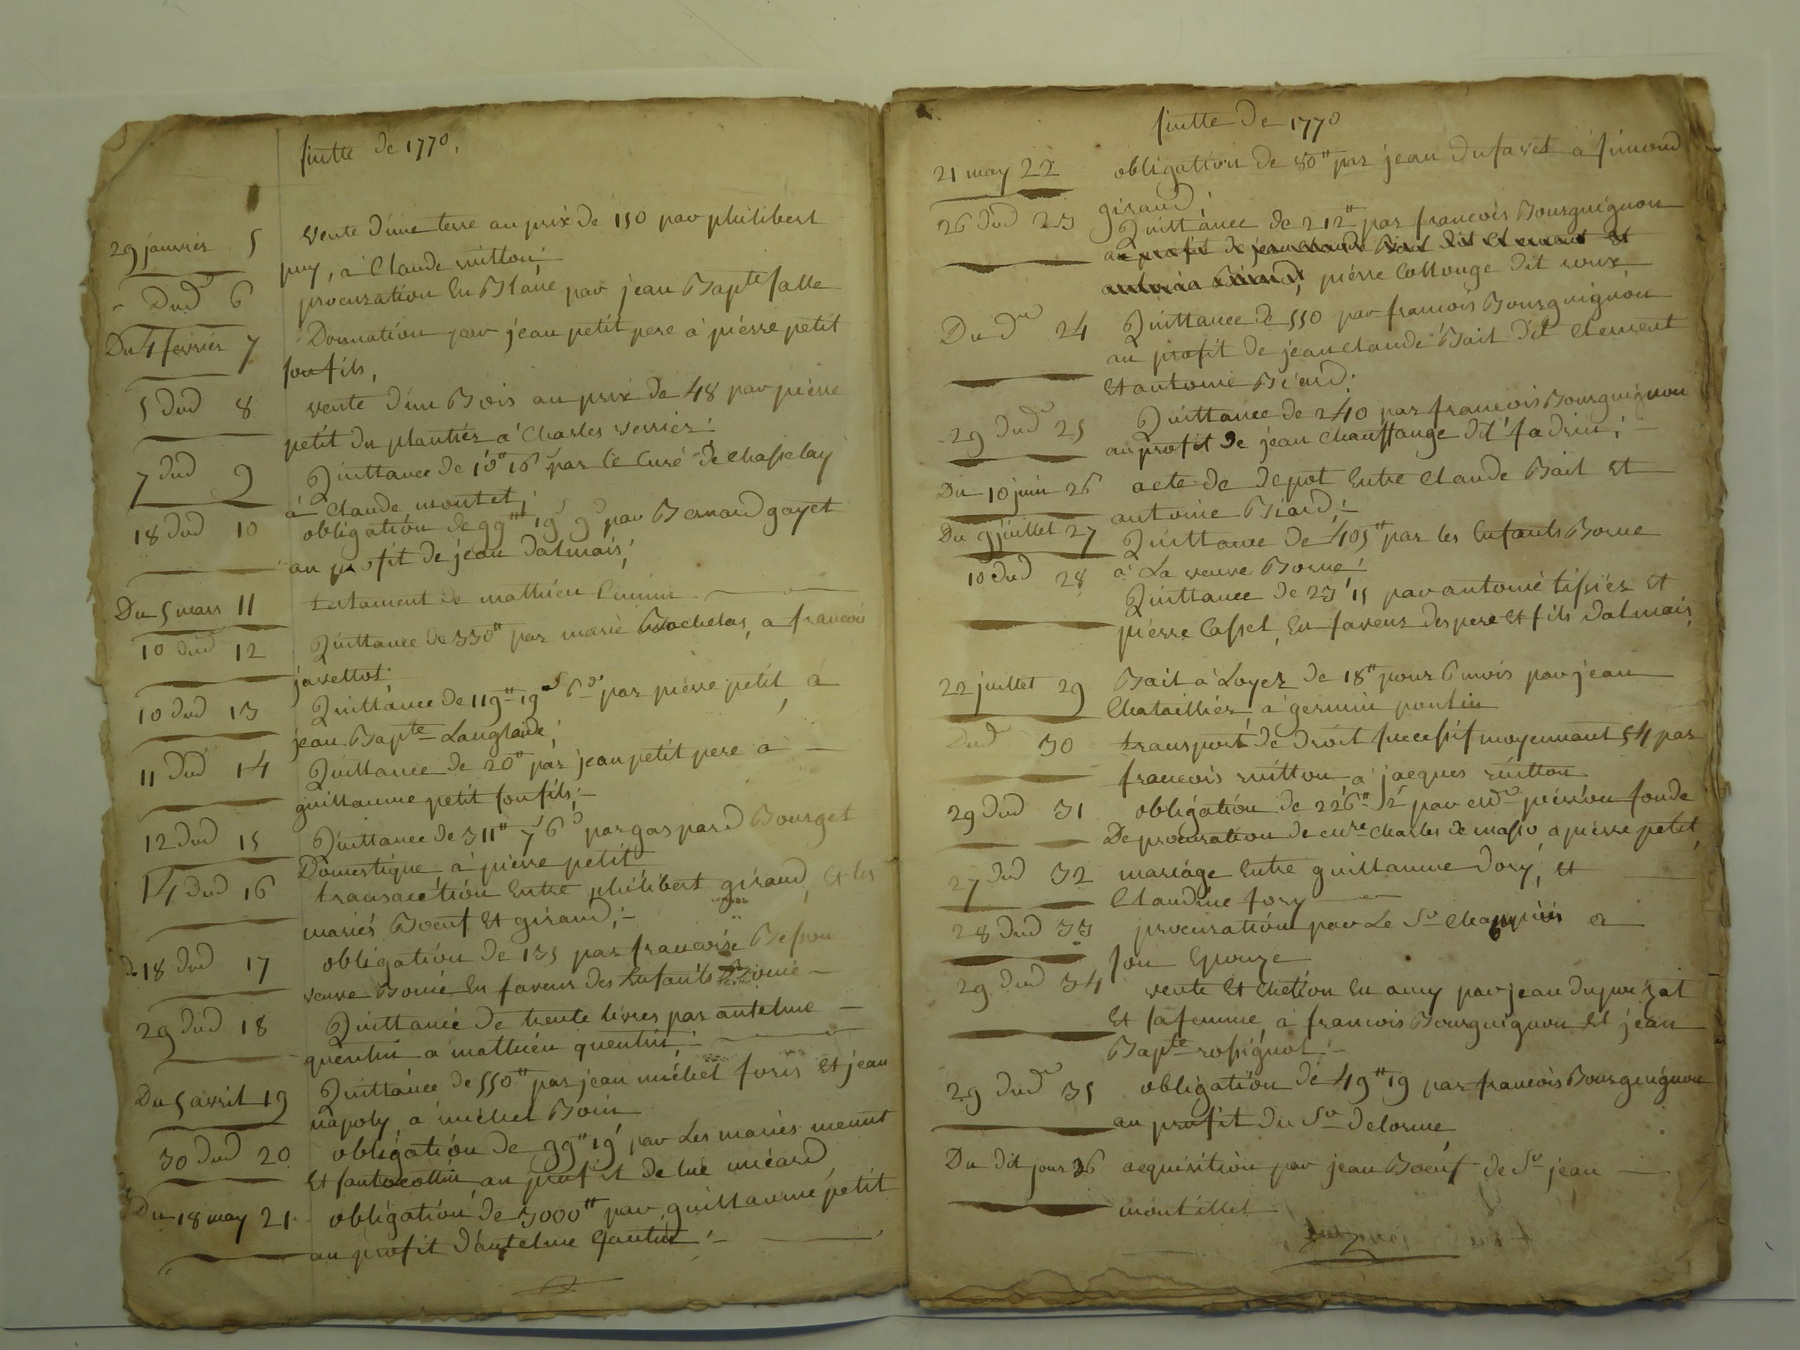 suitte de 1770,
29 janvier 5 vente d'une terre au prix de 150 par philibert
puy, à Claude ruitton;
Dud 6 procuration En Blanc par jean Bapte salle
Du 4 fevrier 7 Donnation par jean petit pere à pierre petit
son fils,
5 dud 8 vente d'un Bois au prix de 48 par pierre
petit du plantier à Charles verrier;
7 dud 9 Quittance de 10# 16s par le Curé de Chasselay
à Claude montet;
18 dud 10 obligation de 99# 19s 9d par Bernard gayet
au profit de jean dalmais;
Du 5 mars 11 testament de mathieu
10 dud 12 Quittance de 330# par marie Bachelas, a francois
javettot
10 dud 13 Quittance de 119# 19s 6d par pierre petit, à
jean Bapte Langlade;
11 dud 14 Quittance de 20# par jean petit pere à
guillaume petit son fils;
12 dud 15 Quittance de 311# 7s 6d par gaspard Bourget
Domestique à pierre petit
14 dud 16 transaction Entre philibert giraud, Et les
mariés Boeuf Et giraud;
18 dud 17 obligation de 135 par francoise Besson
veuve Borne En faveur des Enfants Borne
29 dud 18 Quittance de trente livres par antelme
quentin a mathieu quentin;
Du 5 avril 19 Quittance de 550# par jean michel foris Et jean
napoly, a michel Boin
30 dud 20 obligation de 99# 19s par Les mariés menut
Et santocottin au profit de luc micard
Du 18 may 21 obligation de 3000# par guillaume petit
au profit d'antelme Gantin;
suitte de 1770
21 may 22 obligation de 50# par jean dufavet à simond
giraud;
26 dud 23 Quittance de 212# par francois Bourguignon
au profit de jean claude Bait dit Clement Et
antoine Biard, pierre Collonge dit roux,
Du du 24 Quittance de 550 par francois Bourguignon
au profit de jean claude Bait dit Clement
Et antoine Biard;
29 dud 25 Quittance de 240 par francois Bourguignon
au profit de jean Chauffange dit fadriu;
Du 10 juin 26 acte de depot Entre Claude Bait Et
antoine Biard;
Du 9 juillet 27 Quittance de 405# par les Enfants Borne
à La veuve Borne;
10 dud 28 Quittance de 23' 15 par antoine tissier Et
pierre Casset, En faveur des pere Et fils Dalmais,
22 juillet 29 Bail à Loyer de 18# pour 6 mois par jean
Chataillier, à germin pontin
Dud 30 transport de droit successif moyennant 54 par
francois ruitton, à jacques ruitton
29 dud 31 obligation de 226# 12s par pierron fondé
De procuration de Charles de masso, à pierre petit,
27 dud 32 mariage Entre guillaume Dory, et
Claudine fory
28 dud 33 procuration par Le Sr Champiés et
son Epouze
29 dud 34 vente Et Elétion En amy par jean dupuizat
Et sa femme, à francois Bourguignon Et jean
Bapte rossignol;
29 dud 35 obligation de 49# 19 par francois Bourguignon
au profit du Sr delorme
Du dit jour 36 acquisition par jean Boeuf de Sr jean
montillet